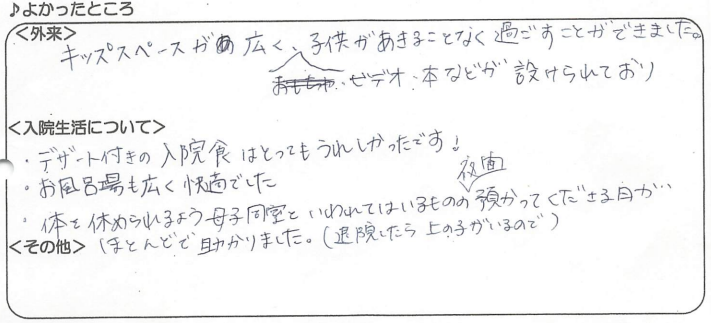 ♪よかったところ
<外来>
キッズスペースが広く、子供があきることなく過ごすことができました。
おもちゃ・ビデオ・本などが設けられており
<入院生活について>
・デザート付きの入院食はとってもうれしかったです!
・お風呂場も広く快適でした
夜間
・体を休められるよう母子同室といわれてはいるものの預かってくださる日が…
<その他>ほとんどで助かりました。(退院したら上の子がいるので)